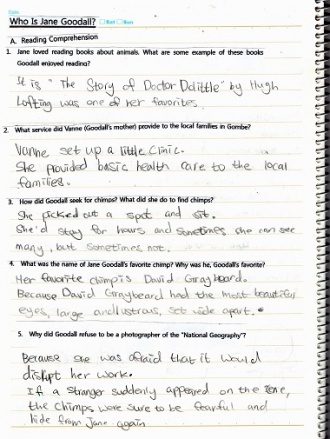 Date.
Who Is Jane Goodall? □Eat □Run
A. Reading Comprehension
1. Jane loved reading books about animals. What are some example of these books
Goodall enjoyed reading?
It is "The Story of Doctor Dolittle" by Hugh
Lofting was one of her favorites.
2. What service did Vanne (Goodall's mother) provide to the local families in Gombe?
Vanne set up a little clinic.
She provided basic health care to the local
families.
3. How did Goodall seek for chimps? What did she do to find chimps?
She picked out a spot and sit.
She'd stay for hours and sometimes she can see
many, but sometimes not.
4. What was the name of Jane Goodall's favorite chimp? Why was he, Goodall's favorite?
Her favorite chimp is David Graybeard.
Because David Graybeard had the most beautiful
eyes, large and lustrous, set wide apart.
5. Why did Goodall refuse to be a photographer of the "National Geography"?
Because she was afraid that it would
disrupt her work.
If a stranger suddenly appeared on the
the chimps were sure to be fearful and
hide from Jane again